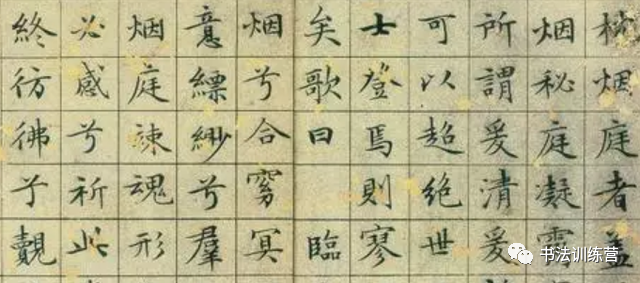 枕烟庭者盖
烟秘庭凝
所謂爰清爰
可以超絶世
士登焉則寥
矣歌曰 臨
烟兮合窈冥
意縹緲兮羣
烟庭竦魂形
必感兮祈此
終彷彿兮覿
书法训练营